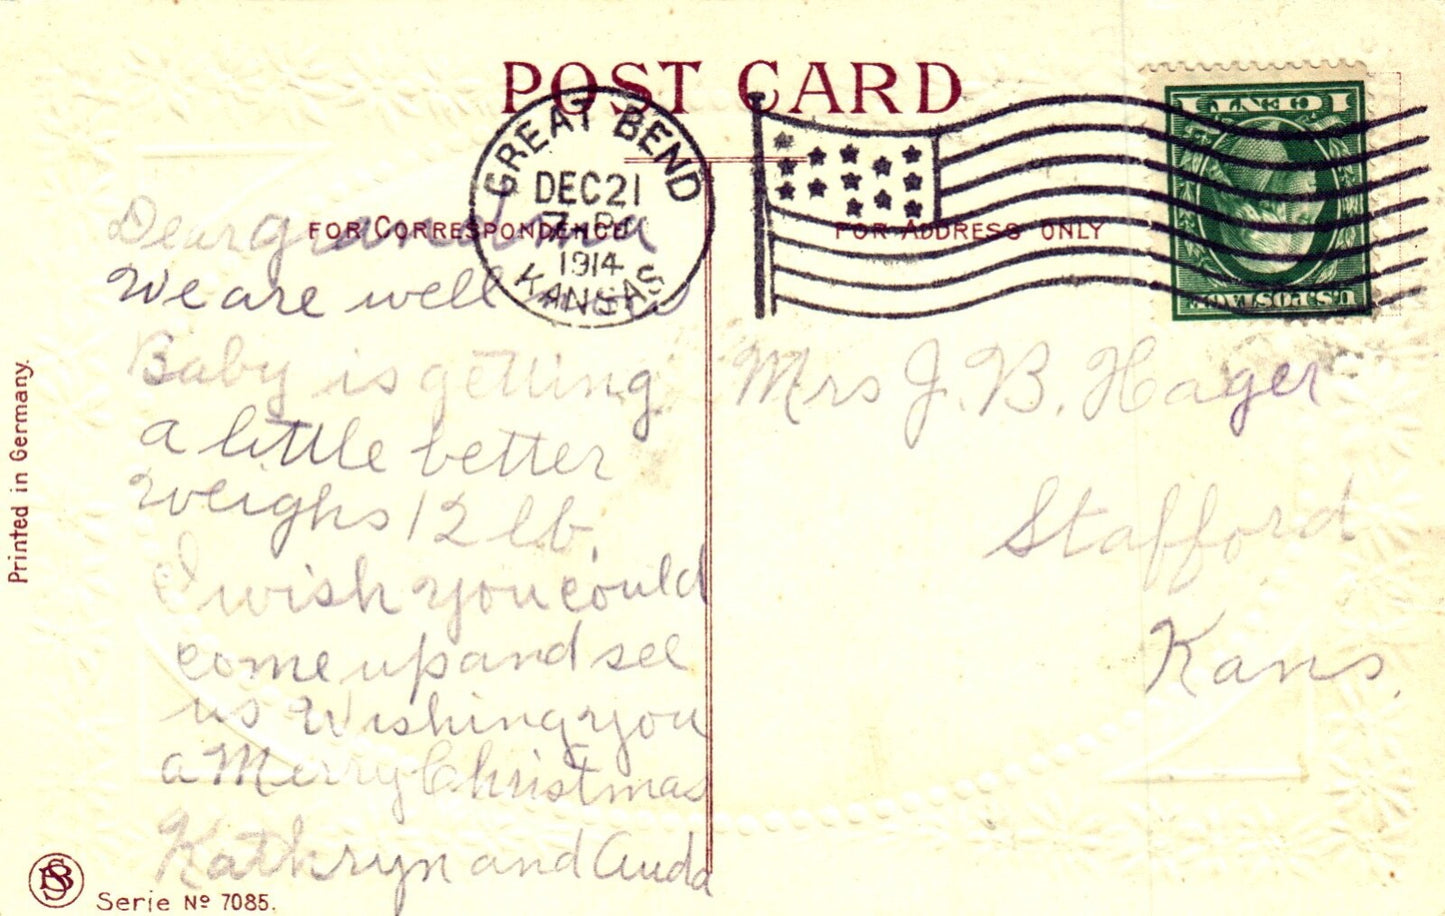 POST CARD
GREAT BEND
DEC 21
7-P
1914
KANSAS
FOR CORRESPONDENCE
FOR ADDRESS ONLY
1 CENT 1
U.S. POSTAGE
Dear grandma
We are well
Baby is getting
a little better
weighs 12 lb.
I wish you could
come up and see
us Wishing you
a Merry Christmas
Kathryn and Auda
Mrs J. B. Hager
Stafford
Kans.
Printed in Germany.
Serie No 7085.